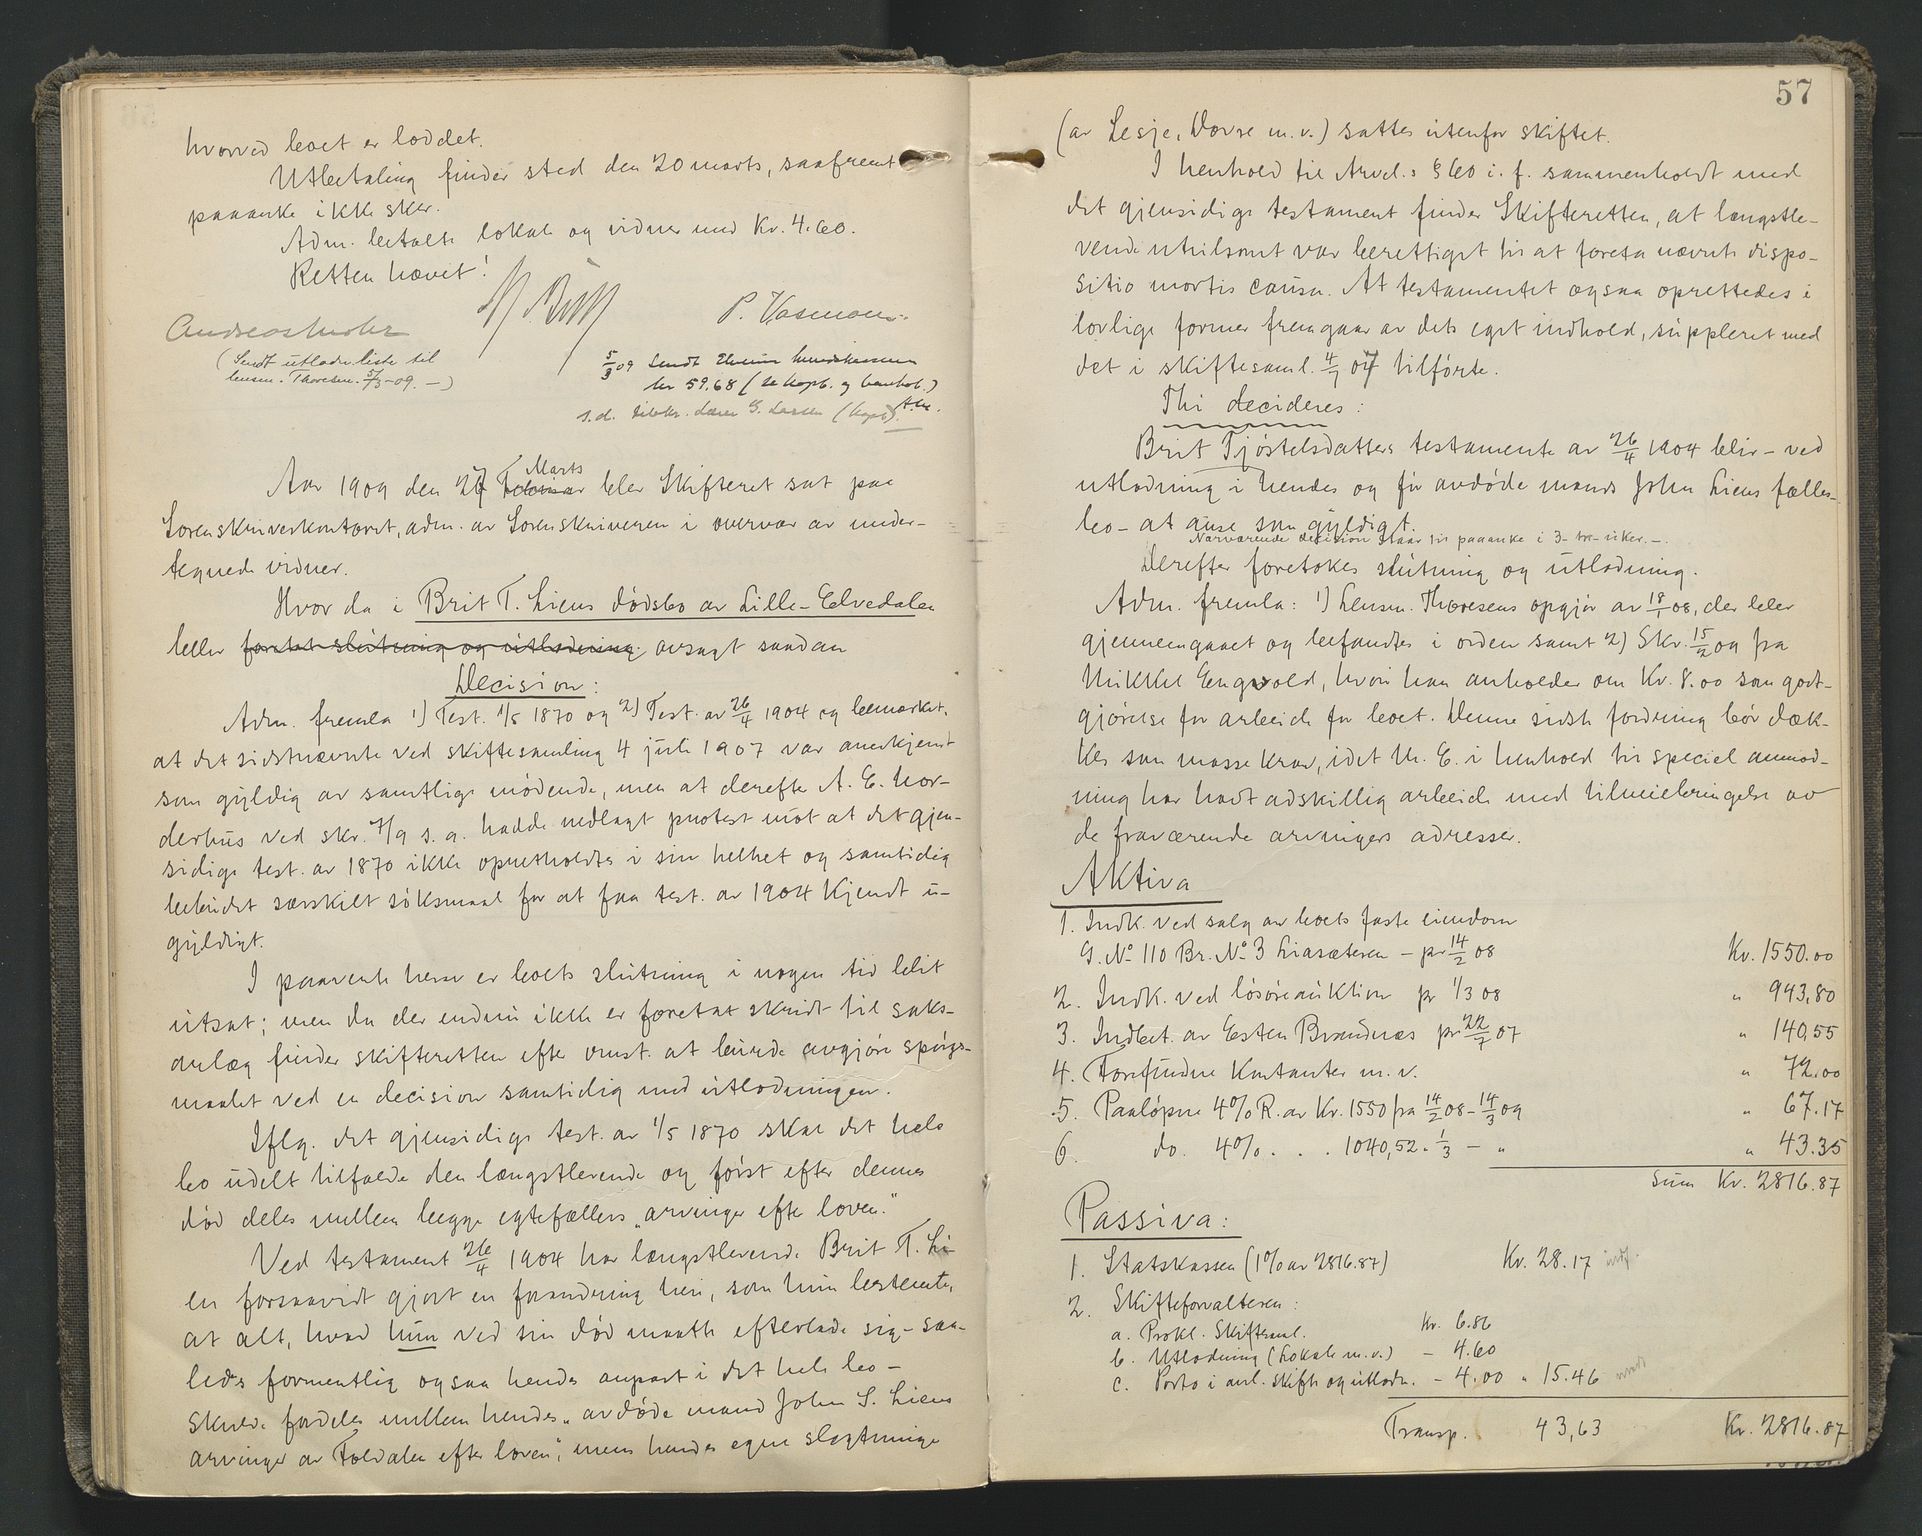 hvorved boet er loddet.
Utbetaling finder sted den 20 marts, saafremt
paaanke ikke sker.
Adm. betalte lokale og vidner med Kr. 4.60.
Retten hævet!
P. Vasmoen.
(Sendt utlodn.liste til
lensm. Thoresen 5/3-09. –)
5/3 09 sendt
kr 59.68 (se kopb. og
s.d. (kopb.)
Aar 1909 den 27 Februar Marts blev Skifteret sat paa
Sorenskriverkontoret, adm. av Sorenskriveren i overvær av under-
tegnede vidner.
Hvor da i Brit T. Liens dødsbo av Lille-Elvedalen
blev foretat slutning og utlodning avsagt saadan
Decision:
Adm. fremla 1) Test. 1/5 1870 og 2) Test. av 26/4 1904 og bemærket,
at det sidstnævnte ved skiftesamling 4 juli 1907 var anerkjendt
som gyldig av samtlige mødende, men at derefter A. E. Nor-
derhus ved skr. 7/9 s. a. hadde nedlagt protest mot at det gjen-
sidige test. av 1870 ikke opretholdtes i sin helhet og samtidig
bebudet særskilt søksmaal for at faa test. av 1904 kjendt u-
gyldigt.
I paavente herav er boets slutning i nogen tid blit
utsat; men da der endnu ikke er foretat skridt til saks-
anlæg finder skifteretten efter omst. at burde avgjøre spørgs-
maalet ved en decision samtidig med utlodningen.
Iflg. det gjensidige test. av 1/5 1870 skal det hele
bo udelt tilfalde den længstlevende og først efter dennes
død deles mellem begge egtefællers "arvinger efter loven."
Ved testament 26/4 1904 har længstlevende Brit T. Li-
en forsaavidt gjort en forandring heri, som hun bestemte,
at alt, hvad hun ved sin død maatte efterlade sig – saa-
ledes formentlig ogsaa hendes anpart i det hele bo –
skulde fordeles mellem hendes "avdøde mand John S. Liens
arvinger av Foldalen efter loven", mens hendes egne slegtninge
57
(av Lesje, Dovre m.v.) sattes utenfor skiftet.
I henhold til Arvel.s § 60 i. f. sammenholdt med
det gjensidige testament finder Skifteretten, at længstle-
vende utvilsomt var berettiget til at foreta nævnte dispo-
sitio mortis causa. At testamentet ogsaa oprettedes i
lovlige former fremgaar av dets eget indhold, suppleret med
det i skiftesaml. 4/7 07 tilførte.
Thi decideres:
Brit Tjøstelsdatters testamente av 26/4 1904 blir – ved
utlodning i hendes og før avdøde mands John Liens fælles-
bo – at anse som gyldigt.
Nærværende decision staar til paaanke i 3 – tre – uker. –
Derefter foretokes slutning og utlodning.
Adm. fremla: 1) Lensm. Thoresens opgjør av 18/1 08, der blev
gjennemgaaet og befandtes i orden samt 2) Skr. 15/2 09 fra
Mikkel Engvold, hvori han anholder om Kr. 8.00 som godt-
gjørelse for arbeide for boet. Denne sidste fordring bør dæk-
kes som massekrav, idet M. E. i henhold til speciel anmod-
ning har hadt adskillig arbeide med tilveiebringelse av
de fraværende arvingers adresser.
Aktiva
1. Indk. ved salg av boets faste eiendom
G. No 110 Br. No 3 Liasæteren – pr 14/2 08 Kr. 1550.00
2. Indk. ved løsøreauktion pr 1/3 08 " 943,80
3. Indbet. av Esten Brandnæs pr 22/7 07 " 140,55
4. Forefundne Kontanter m.v. " 72.00
5. Paaløpne 4% R. av Kr. 1550 fra 14/2 08 – 14/3 09 " 67.17
6. do. 4% . . . 1040,52 " 1/3 – " " 43.35
Sum Kr. 2816.87
Passiva:
1. Statskassen (1% av 2816.87) Kr. 28.17 indf.
2. Skifteforvalteren:
a. Prokl. Skiftesml. Kr. 6.86
b. Utlodning (Lokale m.v.) – 4.60
c. Porto i anl. skifte og utlodn. – 4.00 " 15.46
Transp. 43,63 Kr. 2816.87